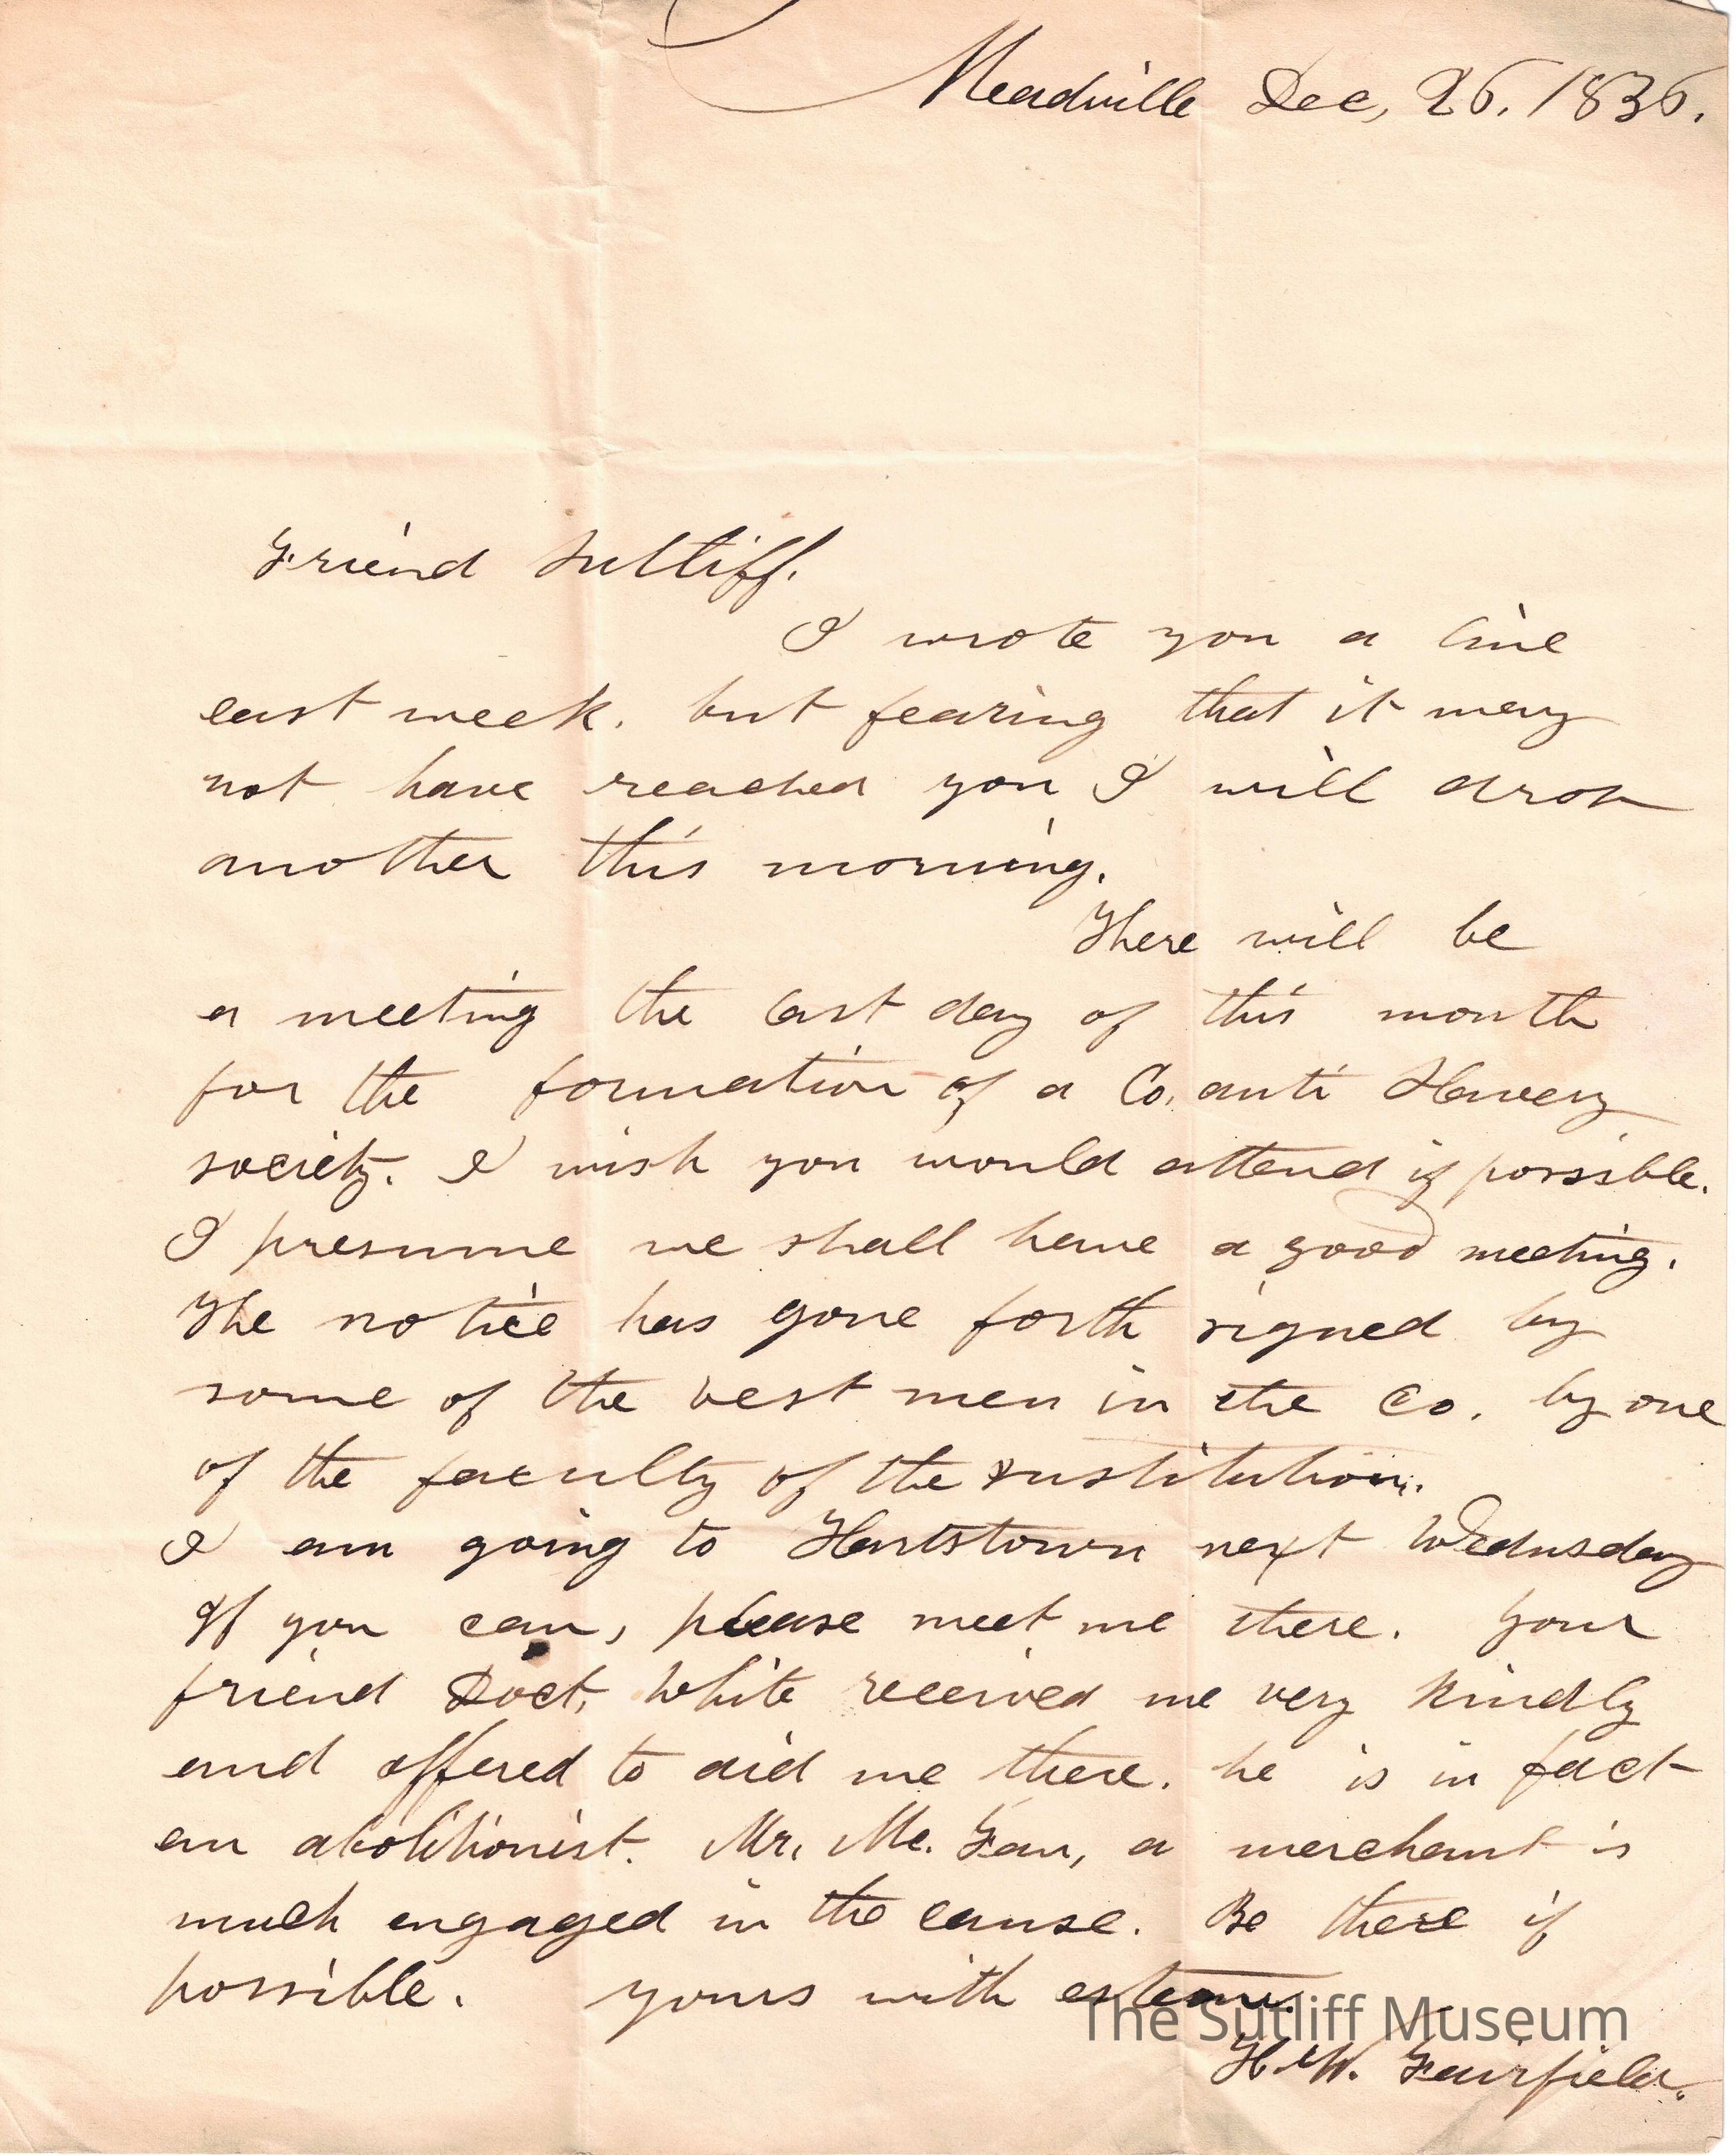 Meadville Dec, 26. 1836.
Friend Sutliff.
I wrote you a line
last week. but fearing that it may
not have reached you I will drop
another this morning.
There will be
a meeting the last day of this month
for the formation of a Co. anti Slavery
society. I wish you would attend if possible.
I presume we shall have a good meeting.
The notice has gone forth signed by
some of the best men in the Co. by one
of the faculty of the institution.
I am going to Hartstown next Wednsday
If you can, please meet me there. Your
friend Doct, White received me very kindly
and offered to aid me there. he is in fact
an abolitionist. Mr. Mc. Fan, a merchant is
much engaged in the cause. Be there if
possible. yours with esteem.
The Sutliff Museum
H. W. Fairfield.